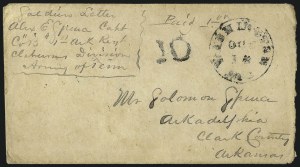 Soldiers Letter
Alex E Spence Capt
Co "B" 1st Ark Regt
Cleburnes Division
Army of Tenn
Paid
10
Mr Solomon Spence
Arkadelphia
Clark County
Arkansas